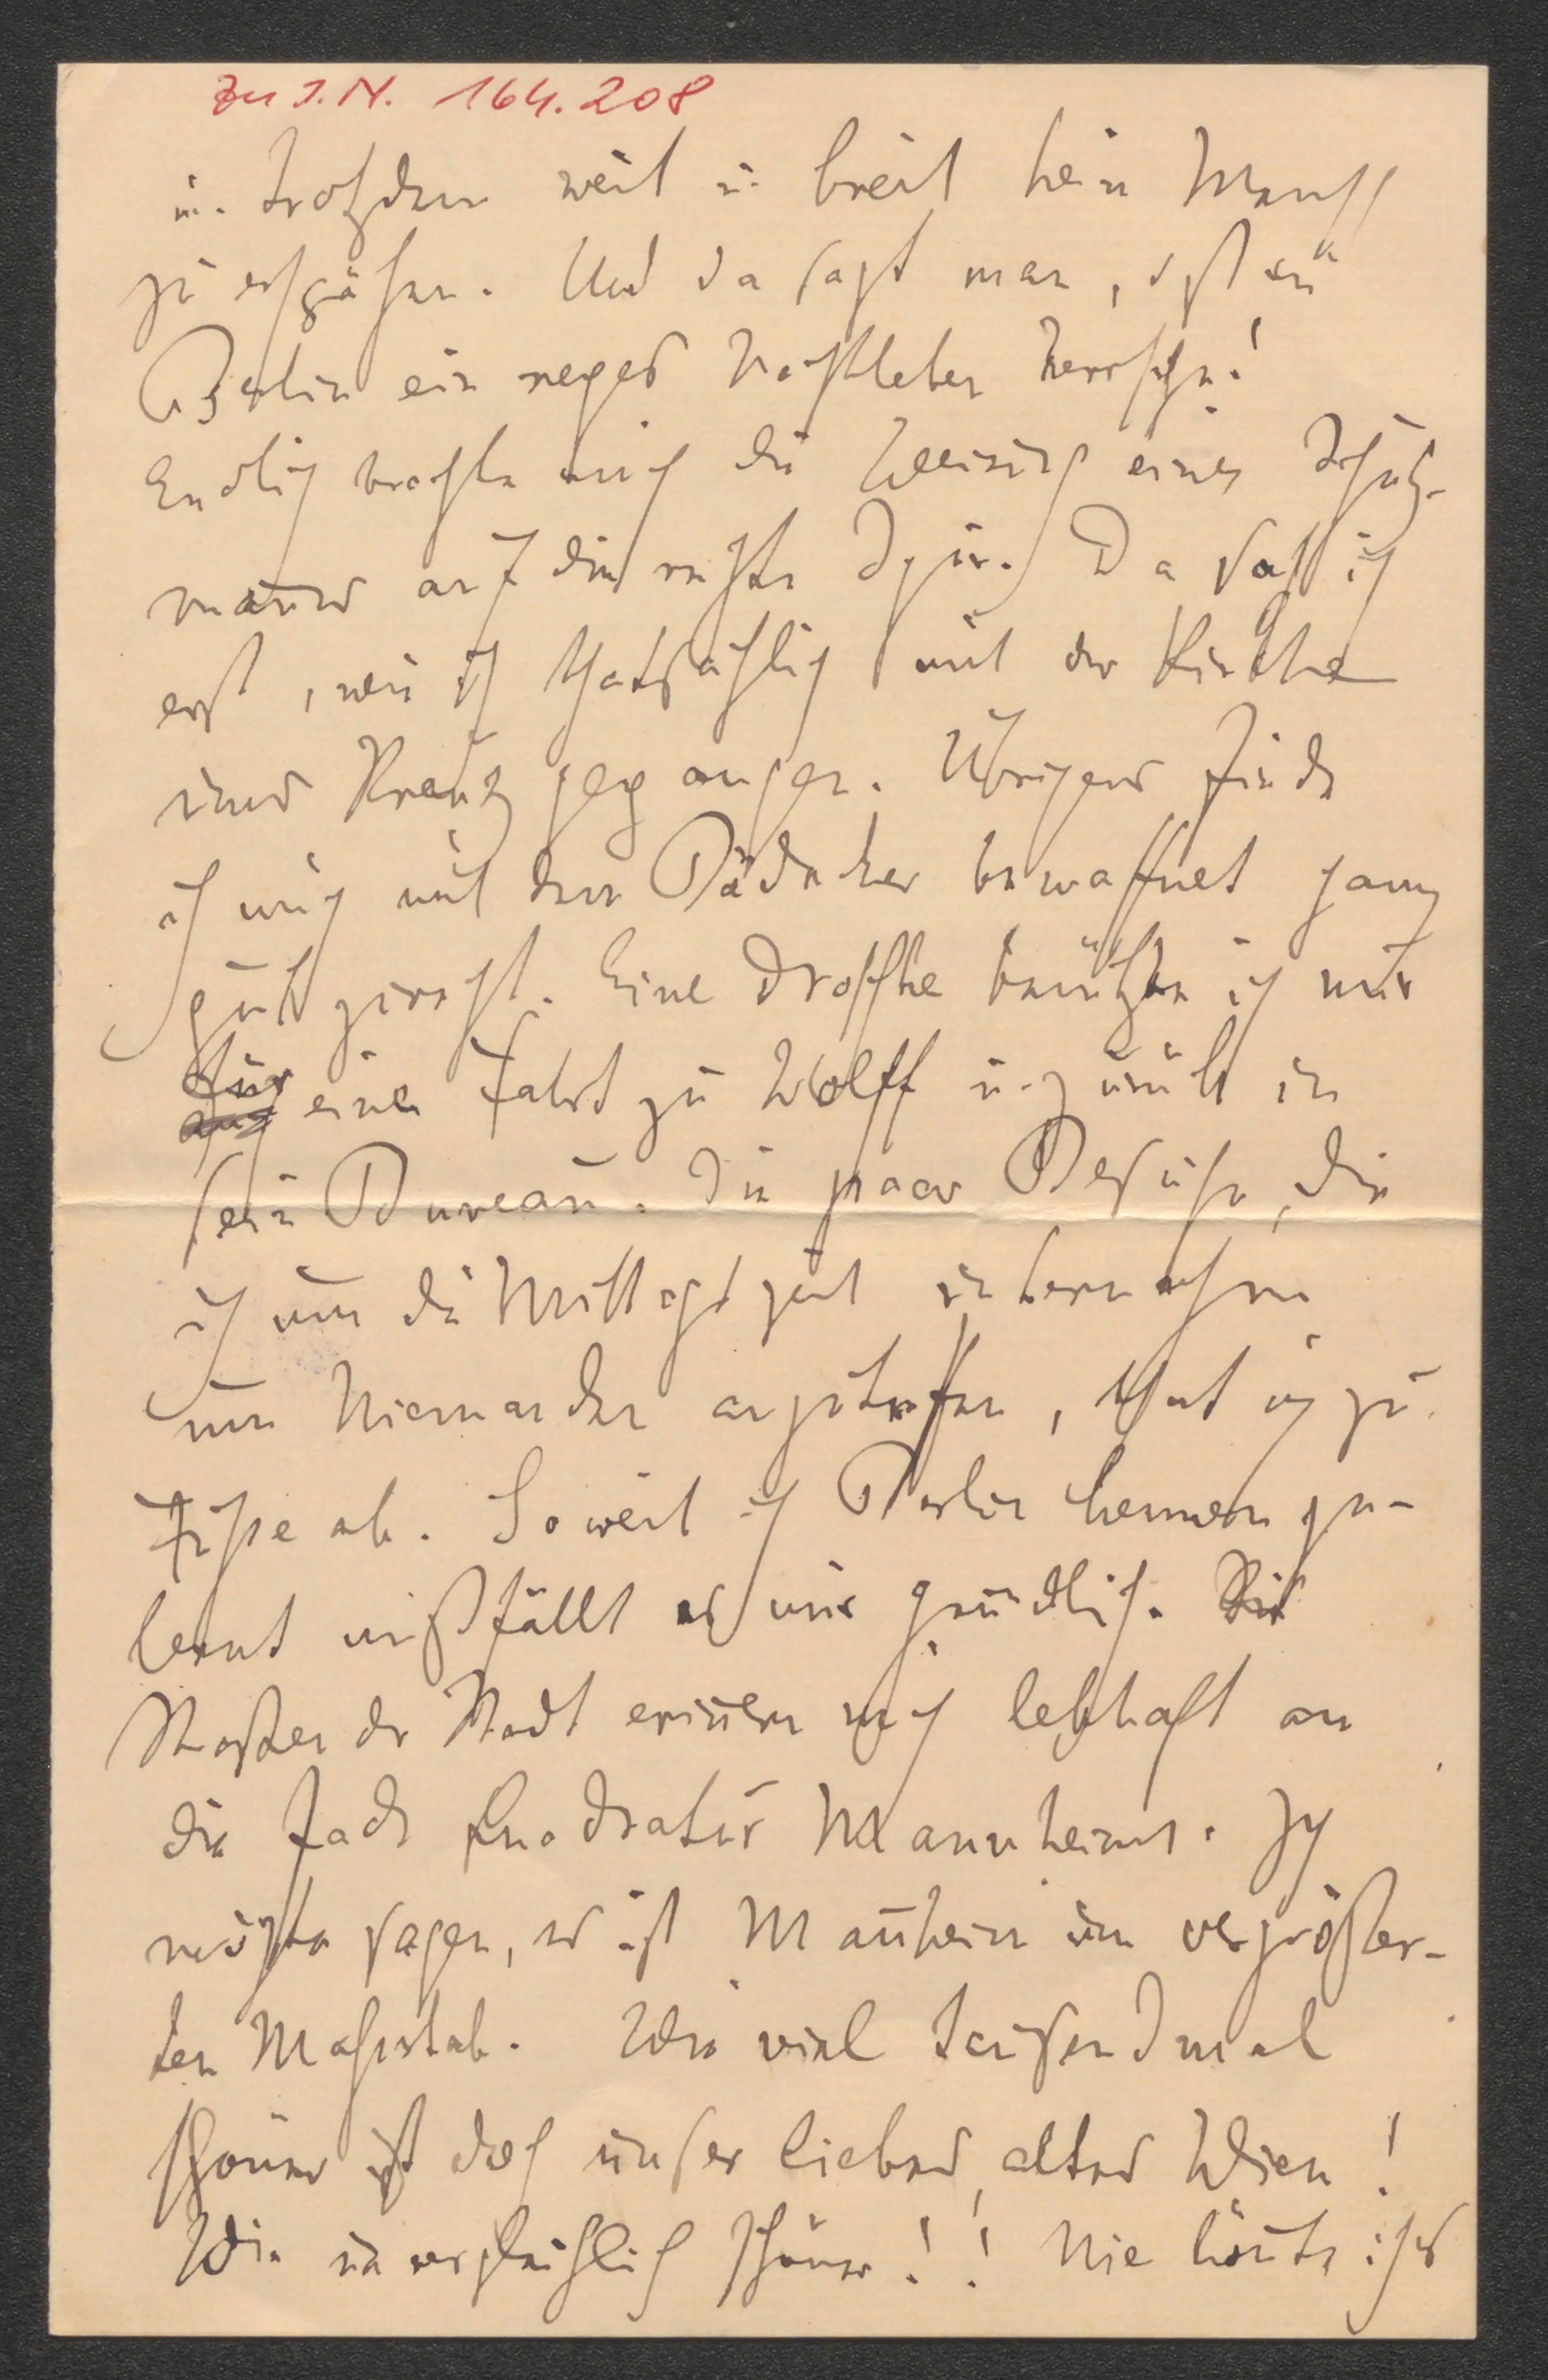 Zu I.N. 164.208
u. trotzdem weit u. breit kein Mensch
zu erspähen. Und da sagt man, daß in
Berlin ein reges Nachtleben herrsche!
Endlich brachte mich die Weisung eines Schutz-
manns auf die rechte Spur. Da sah ich
erst, wie ich thatsächlich mit der Kirche
ums Kreuz gegangen. Übrigens finde
ich mich mit dem Bädeker bewaffnet ganz
gut zurecht. Eine Droschke benützte ich nur
für eine Fahrt zu Wolff u. zurück in
sein Bureau. Die paar Besuche, die
ich um die Mittagszeit unternahm
um Niemanden anzutreffen, that ich zu
Fuße ab. Soweit ich Berlin kennen ge-
lernt mißfällt es mir gründlich. Die
Straßen der Stadt erinnern mich lebhaft an
die fade Quadratur Mannheims. Ich
möchte sagen, es ist Mannheim im vergrößer-
ten Maßstab. Wie viel tausendmal
schöner ist doch unser liebes, altes Wien!
Wie unvergleichlich schöner!! Nie könnte ich's